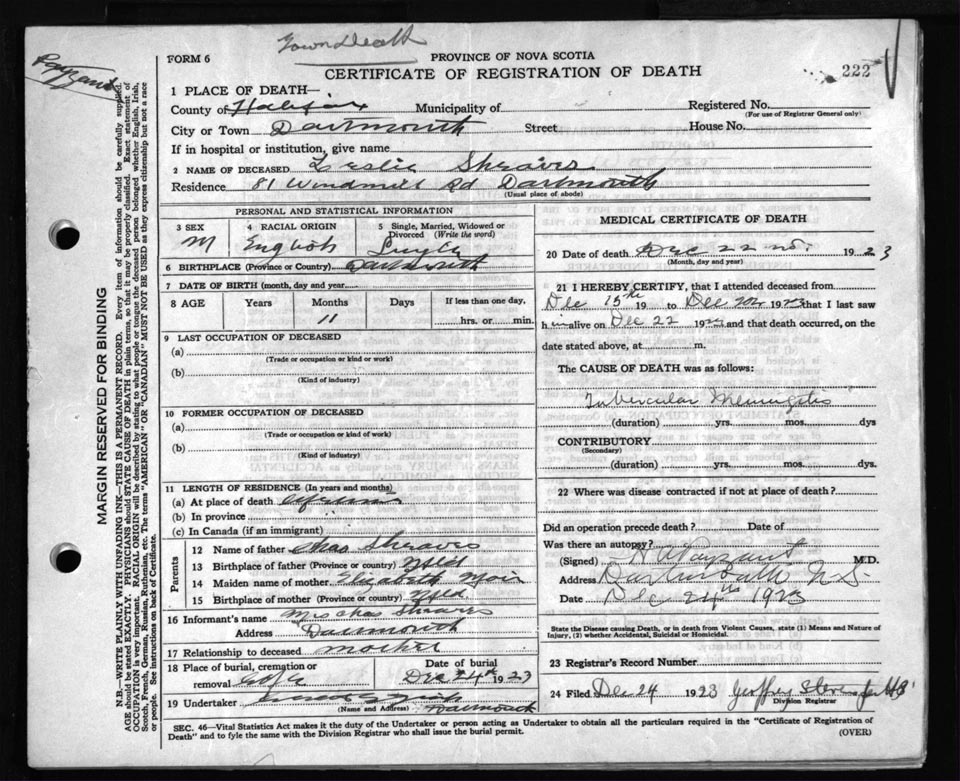 Town Death
Payzant
FORM 6
PROVINCE OF NOVA SCOTIA
CERTIFICATE OF REGISTRATION OF DEATH
222
1 PLACE OF DEATH—
County of Halifax Municipality of Registered No.
(For use of Registrar General only)
City or Town Dartmouth Street House No.
If in hospital or institution, give name
2 NAME OF DECEASED Leslie Shraves
Residence 81 Windmill Rd Dartmouth
(Usual place of abode)
PERSONAL AND STATISTICAL INFORMATION
3 SEX 4 RACIAL ORIGIN 5 Single, Married, Widowed or Divorced (Write the word)
M English Single
6 BIRTHPLACE (Province or Country) Dartmouth
7 DATE OF BIRTH (month, day and year)
8 AGE Years Months Days If less than one day,
11 hrs. or min.
9 LAST OCCUPATION OF DECEASED
(a)
(Trade or occupation or kind or work)
(b)
(Kind of industry)
10 FORMER OCCUPATION OF DECEASED
(a)
(Trade or occupation or kind of work)
(b)
(Kind of industry)
11 LENGTH OF RESIDENCE (In years and months)
(a) At place of death
(b) In province
(c) In Canada (if an immigrant)
Parents
12 Name of father Chas Shraves
13 Birthplace of father (Province or country) Nfld
14 Maiden name of mother Elizabeth Moir
15 Birthplace of mother (Province or country) Nfld.
16 Informant's name Mrs Chas Shraves
Address Dartmouth
17 Relationship to deceased mother
18 Place of burial, cremation or removal Date of burial
Dec 24th 1923
19 Undertaker
(Name and Address) Dartmouth
MEDICAL CERTIFICATE OF DEATH
20 Date of death Dec 22nd. 1923
(Month, day and year)
21 I HEREBY CERTIFY, that I attended deceased from
Dec 15th 19 to Dec 22 1923 that I last saw
him alive on Dec 22 1923 and that death occurred, on the
date stated above, at m.
The CAUSE OF DEATH was as follows:
Tubercular Meningitis
(duration) yrs. mos. dys
CONTRIBUTORY
(Secondary)
(duration) yrs. mos. dys.
22 Where was disease contracted if not at place of death?
Did an operation precede death? Date of
Was there an autopsy?
(Signed) Payzant M.D.
Address Dartmouth N S
Date Dec 24th 1923
State the Disease causing Death, or in death from Violent Causes, state (1) Means and Nature of
Injury, (2) whether Accidental, Suicidal or Homicidal.
23 Registrar's Record Number
24 Filed Dec 24 1923 Geoffrey Stevens
Division Registrar
SEC. 46—Vital Statistics Act makes it the duty of the Undertaker or person acting as Undertaker to obtain all the particulars required in the "Certificate of Registration of
Death" and to fyle the same with the Division Registrar who shall issue the burial permit.
(OVER)
MARGIN RESERVED FOR BINDING
N.B.—WRITE PLAINLY WITH UNFADING INK—THIS IS A PERMANENT RECORD. Every item of information should be carefully supplied.
AGE should be stated EXACTLY. PHYSICIANS should STATE CAUSE OF DEATH in plain terms, so that it may be properly classified. Exact statement of
OCCUPATION is very important. RACIAL ORIGIN will be described by stating to what people or tongue the deceased person belonged whether English, Irish,
Scotch, French, German, Russian, Ruthenian, etc. The terms "AMERICAN" OR "CANADIAN" MUST NOT BE USED as they express citizenship but not a race
or people. See instructions on back of Certificate.